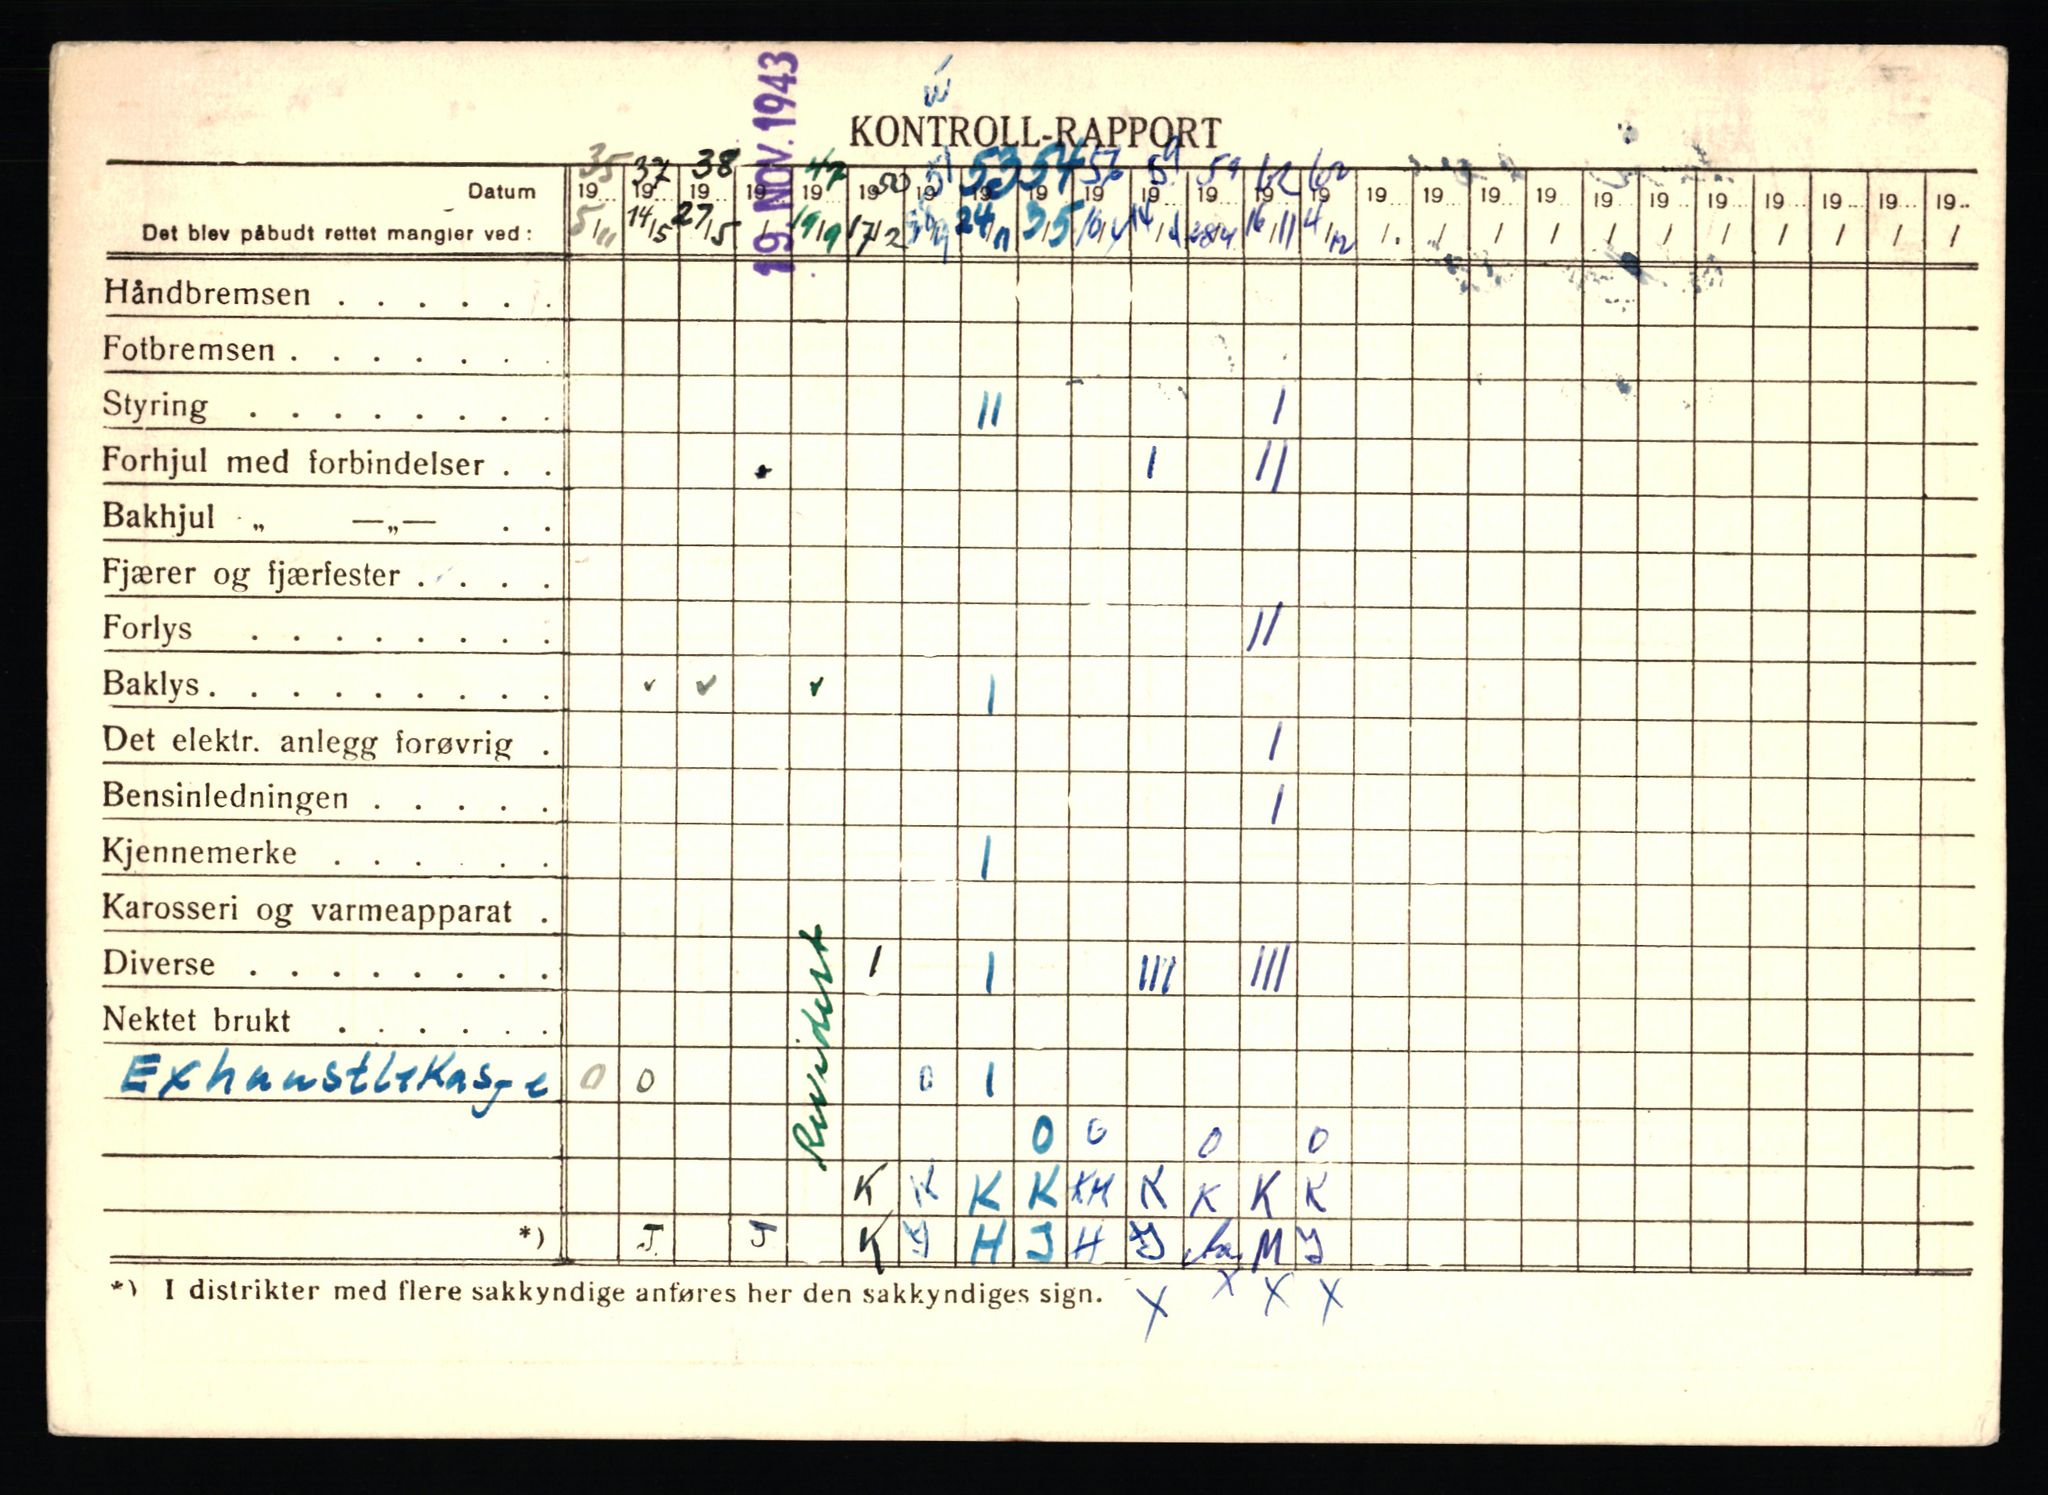 19 NOV. 1943
KONTROLL-RAPPORT
35 37 38 47 50 51 53 54 56 59 59 62 62
Datum 19... 19... 19... 19 19... 19 19... 19... 19... 19... 19... 19... 19... 19... 19... 19... 19... 19... 19... 19... 19... 19... 19... 19... 19...
Det blev påbudt rettet mangler ved: 5/11 14/5 27/5 / 19/9 17/2 24/11 3/5 10/4 14/1 28/4 16/11 4/12 / / / / / / / / / / /
Håndbremsen . . . . . .
Fotbremsen . . . . . . .
Styring . . . . . . . . II I
Forhjul med forbindelser . . I II
Bakhjul „ —„— . .
Fjærer og fjærfester . . . .
Forlys . . . . . . . . II
Baklys . . . . . . . . . ✓ ✓ ✓ I
Det elektr. anlegg forøvrig . I
Bensinledningen . . . . . I
Kjennemerke . . . . . I
Karosseri og varmeapparat .
Diverse . . . . . . . . I I III III
Nektet brukt . . . . . .
Revidert
Exhaustlekasje 0 0 0 I
0 0 0 0
K K K K KH K K K K
*) J J K J H J H J M J
*) I distrikter med flere sakkyndige anføres her den sakkyndiges sign. X X X X